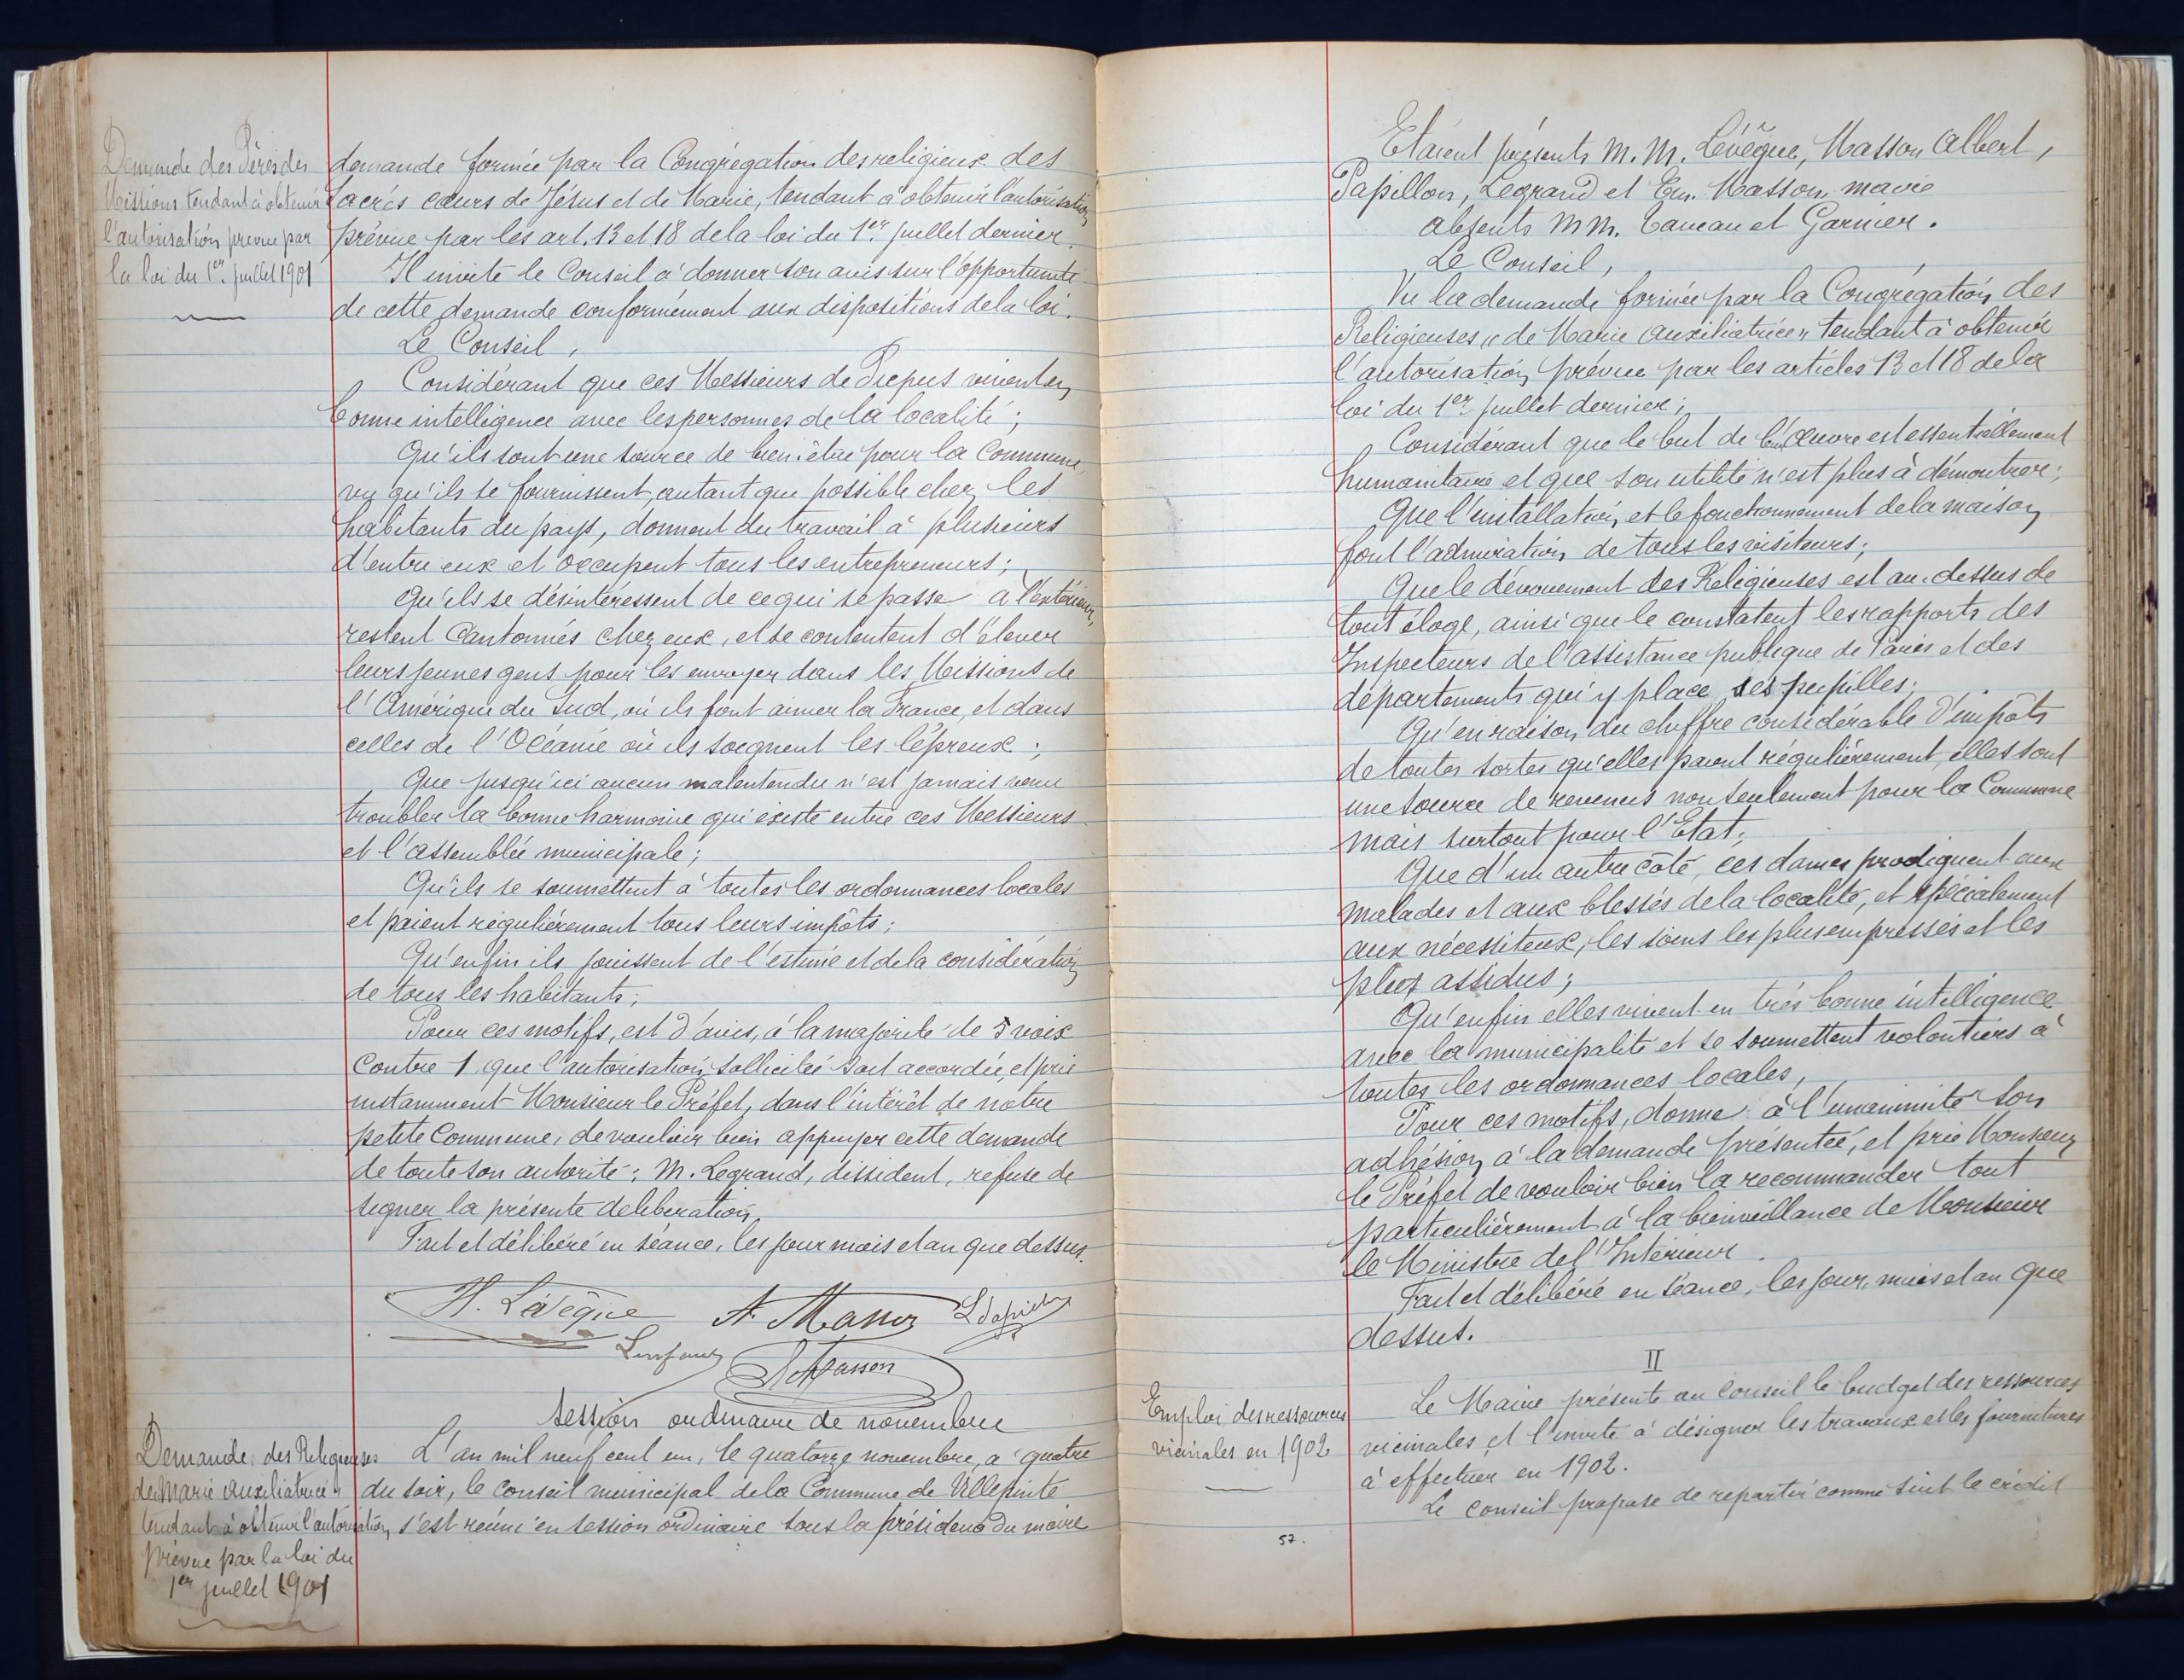 Demande des Pères des
Missions tendant à obtenir
l'autorisation prévue par
la loi du 1er juillet 1901
demande formée par la Congrégation des religieux des
Sacrés cœurs de Jésus et de Marie, tendant à obtenir l'autorisation
prévue par les art. 13 et 18 de la loi du 1er juillet dernier.
Il invite le Conseil à donner son avis sur l'opportunité
de cette demande conformément aux dispositions de la loi.
Le Conseil,
Considérant que ces Messieurs de Picpus vivent en
bonne intelligence avec les personnes de la localité;
Qu'ils sont une source de bien-être pour la Commune,
vu qu'ils se fournissent, autant que possible chez les
habitants du pays, donnent du travail à plusieurs
d'entre eux et occupent tous les entrepreneurs;
Qu'ils se désintéressent de ce qui se passe à l'extérieur,
restent cantonnés chez eux, et se contentent d'élever
leurs jeunes gens pour les envoyer dans les Missions de
l'Amérique du Sud, où ils font aimer la France, et dans
celles de l'Océanie où ils soignent les lépreux;
Que jusqu'ici aucun malentendu n'est jamais venu
troubler la bonne harmonie qui existe entre ces Messieurs
et l'assemblée municipale;
Qu'ils se soumettent à toutes les ordonnances locales
et paient régulièrement tous leurs impôts;
Qu'enfin ils jouissent de l'estime et de la considération
de tous les habitants;
Pour ces motifs, est d'avis, à la majorité de 5 voix
contre 1 que l'autorisation sollicitée soit accordée, et prie
instamment Monsieur le Préfet, dans l'intérêt de notre
petite Commune, de vouloir bien appuyer cette demande
de toute son autorité; M. Legrand, dissident, refuse de
signer la présente délibération.
Fait et délibéré en séance, les jour mois et an que dessus.
H. Lévêque A. Masson L Papillon
Masson
Session ordinaire de novembre
Demande des Religieuses
de Marie auxiliatrice
tendant à obtenir l'autorisation
prévue par la loi du
1er juillet 1901
L'an mil neuf cent un, le quatorze novembre, à quatre
du soir, le conseil municipal de la Commune de Villepinte
s'est réuni en session ordinaire sous la présidence du maire
Etaient présents M.M. Lévêque, Masson Albert,
Papillon, Legrand et Em. Masson, maire
absents MM. Caveau et Garnier.
Le Conseil,
Vu la demande formée par la Congrégation des
Religieuses "de Marie auxiliatrice" tendant à obtenir
l'autorisation prévue par les articles 13 et 18 de la
loi du 1er juillet dernier;
Considérant que le but de l'Œuvre est essentiellement
humanitaire et que son utilité n'est plus à démontrer;
Que l'installation et le fonctionnement de la maison
font l'admiration de tous les visiteurs;
Que le dévouement des Religieuses est au-dessus de
tout éloge, ainsi que le constatent les rapports des
Inspecteurs de l'assistance publique de Paris et des
départements qui y place ses pupilles;
Qu'en raison du chiffre considérable d'impôts
de toutes sortes qu'elles paient régulièrement, elles sont
une source de revenus non seulement pour la Commune
mais surtout pour l'Etat;
Que d'un autre côté, ces dames prodiguent aux
malades et aux blessés de la localité, et spécialement
aux nécessiteux, les soins les plus empressés et les
plus assidus;
Qu'enfin elles vivent en très bonne intelligence
avec la municipalité et se soumettent volontiers à
toutes les ordonnances locales,
Pour ces motifs, donne à l'unanimité son
adhésion à la demande présentée, et prie Monsieur
le Préfet de vouloir bien la recommander tout
particulièrement à la bienveillance de Monsieur
le Ministre de l'Intérieur.
Fait et délibéré en séance, les jour, mois et an que
dessus.
II
Emploi des ressources
vicinales en 1902
Le Maire présente au conseil le budget des ressources
vicinales et l'invite à désigner les travaux et les fournitures
à effectuer en 1902.
Le conseil propose de répartir comme suit le crédit
57.